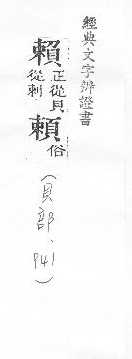 經典文字辨證書
賴正從貝從剌頼俗
(貝部、941)